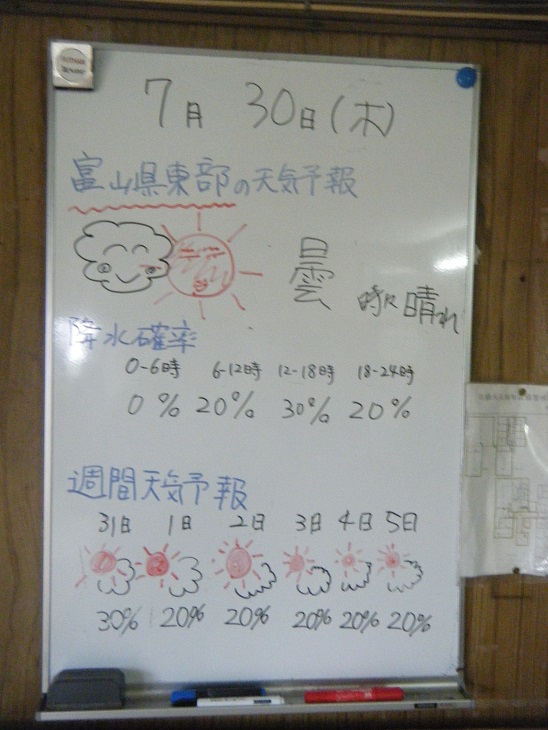 7月 30日(木)
富山県東部の天気予報
曇 時々晴れ
降水確率
0-6時 6-12時 12-18時 18-24時
0% 20% 30% 20%
週間天気予報
31日 1日 2日 3日 4日 5日
30% 20% 20% 20% 20% 20%